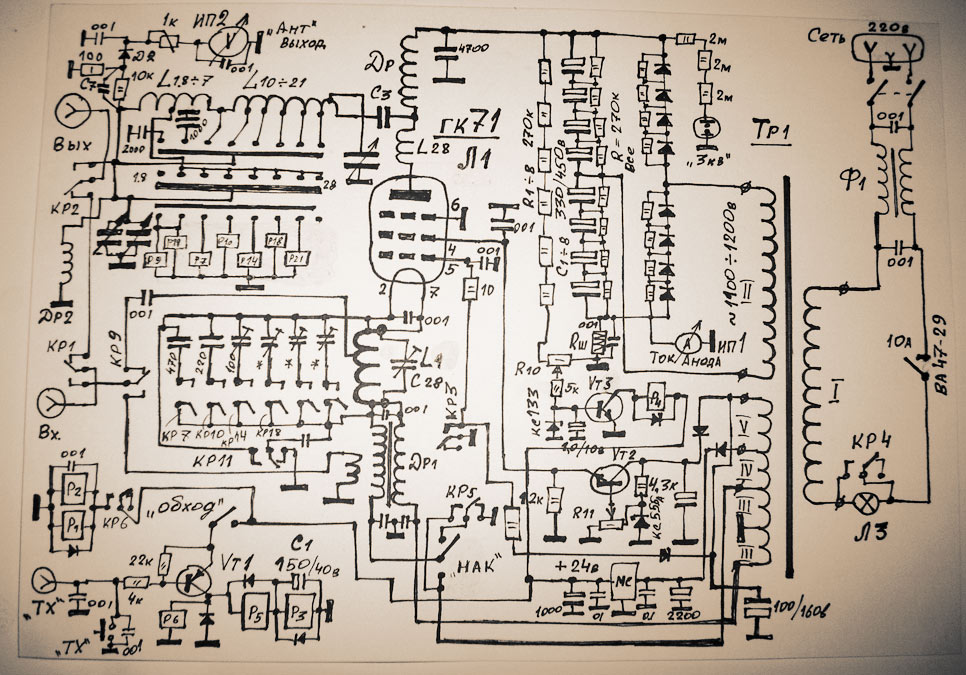 001
1к
ИП2
"Ант"
Выход
V
001
100
Д2
10к
С7
L 1.8÷7
L 10÷21
Др
4700
2м
2м
2м
"3кв"
Сеть
220в
001
Вых
200
1000
С3
L28
ГК71
Л1
R1÷8 270к
С1÷8 330/450в
R=270к
Все
Тр1
Ф1
001
КР2
1.8
28
6
4
5
2
7
001
001
10
001
≈1100÷1200в
II
I
Р9
Р18
Р7
Р10
Р14
Р18
Р21
Др2
001
КР1
КР9
470
220
100
*
*
L1
С28
001
Rш
001
А
ИП1
Ток/Анода
10А
ВА47-29
R10
5к
Вх.
КР7
КР10
КР14
КР18
КР11
Др1
КР3
ке133
VT3
Р4
1,0/10в
VT2
V
IV
III
КР4
Л3
001
Р2
Р1
КР6
"Обход"
КР5
"НАК"
R11
4.3к
22к
VT1
С1
150/40в
+24в
МС
1000
10
10
2200
100/160в
"ТХ"
001
4к
Р6
Р5
Р3
"ТХ"
001